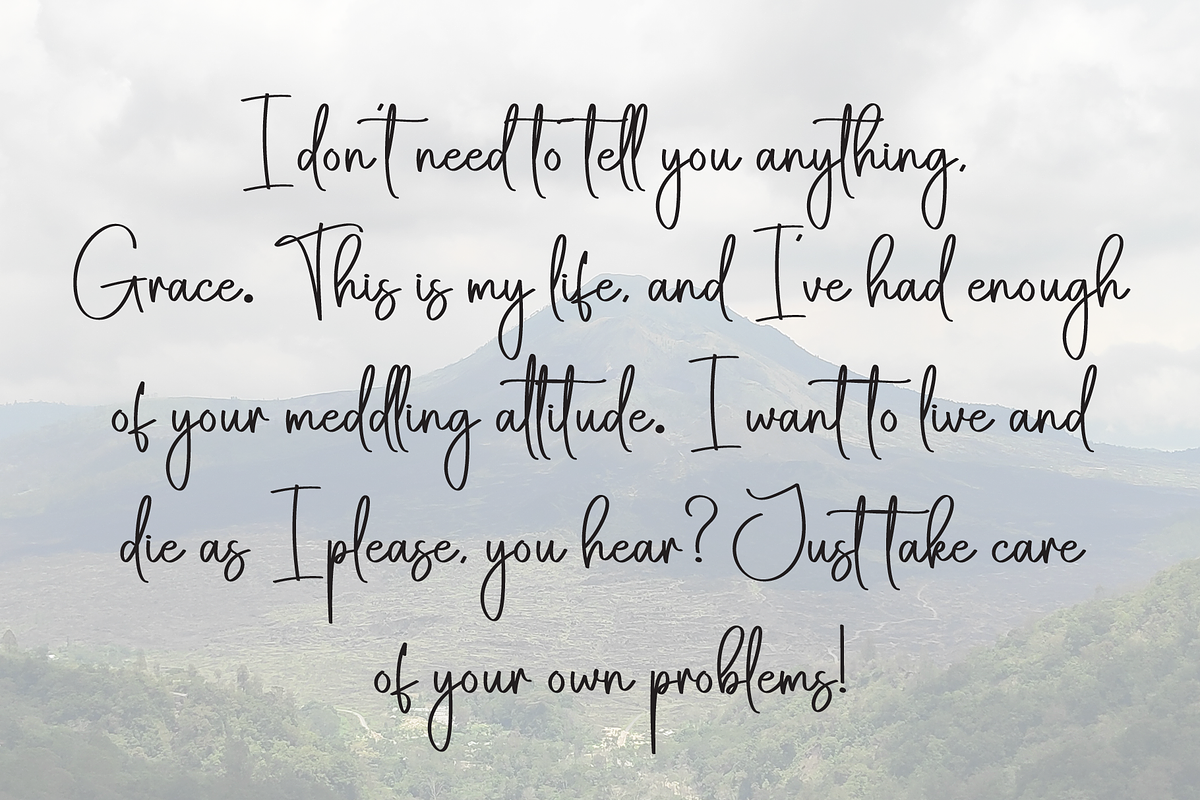 I don't need to tell you anything,
Grace. This is my life, and I've had enough
of your meddling attitude. I want to live and
die as I please, you hear? Just take care
of your own problems!